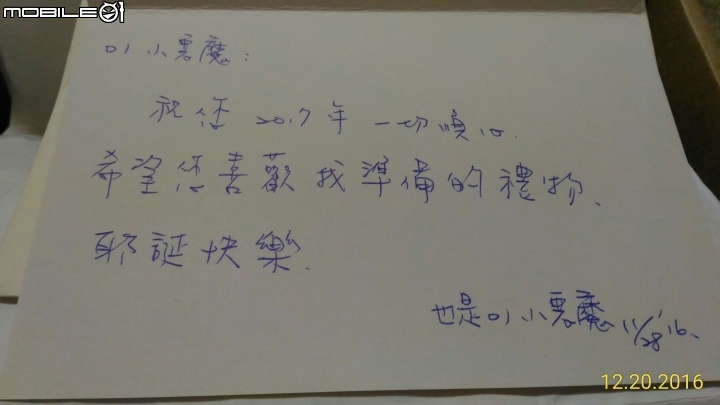 MOBILE01
01小惡魔:
祝您 2017年 一切順心.
希望您喜歡我準備的禮物、
耶誕快樂.
也是01小惡魔 11/28'16.
12.20.2016